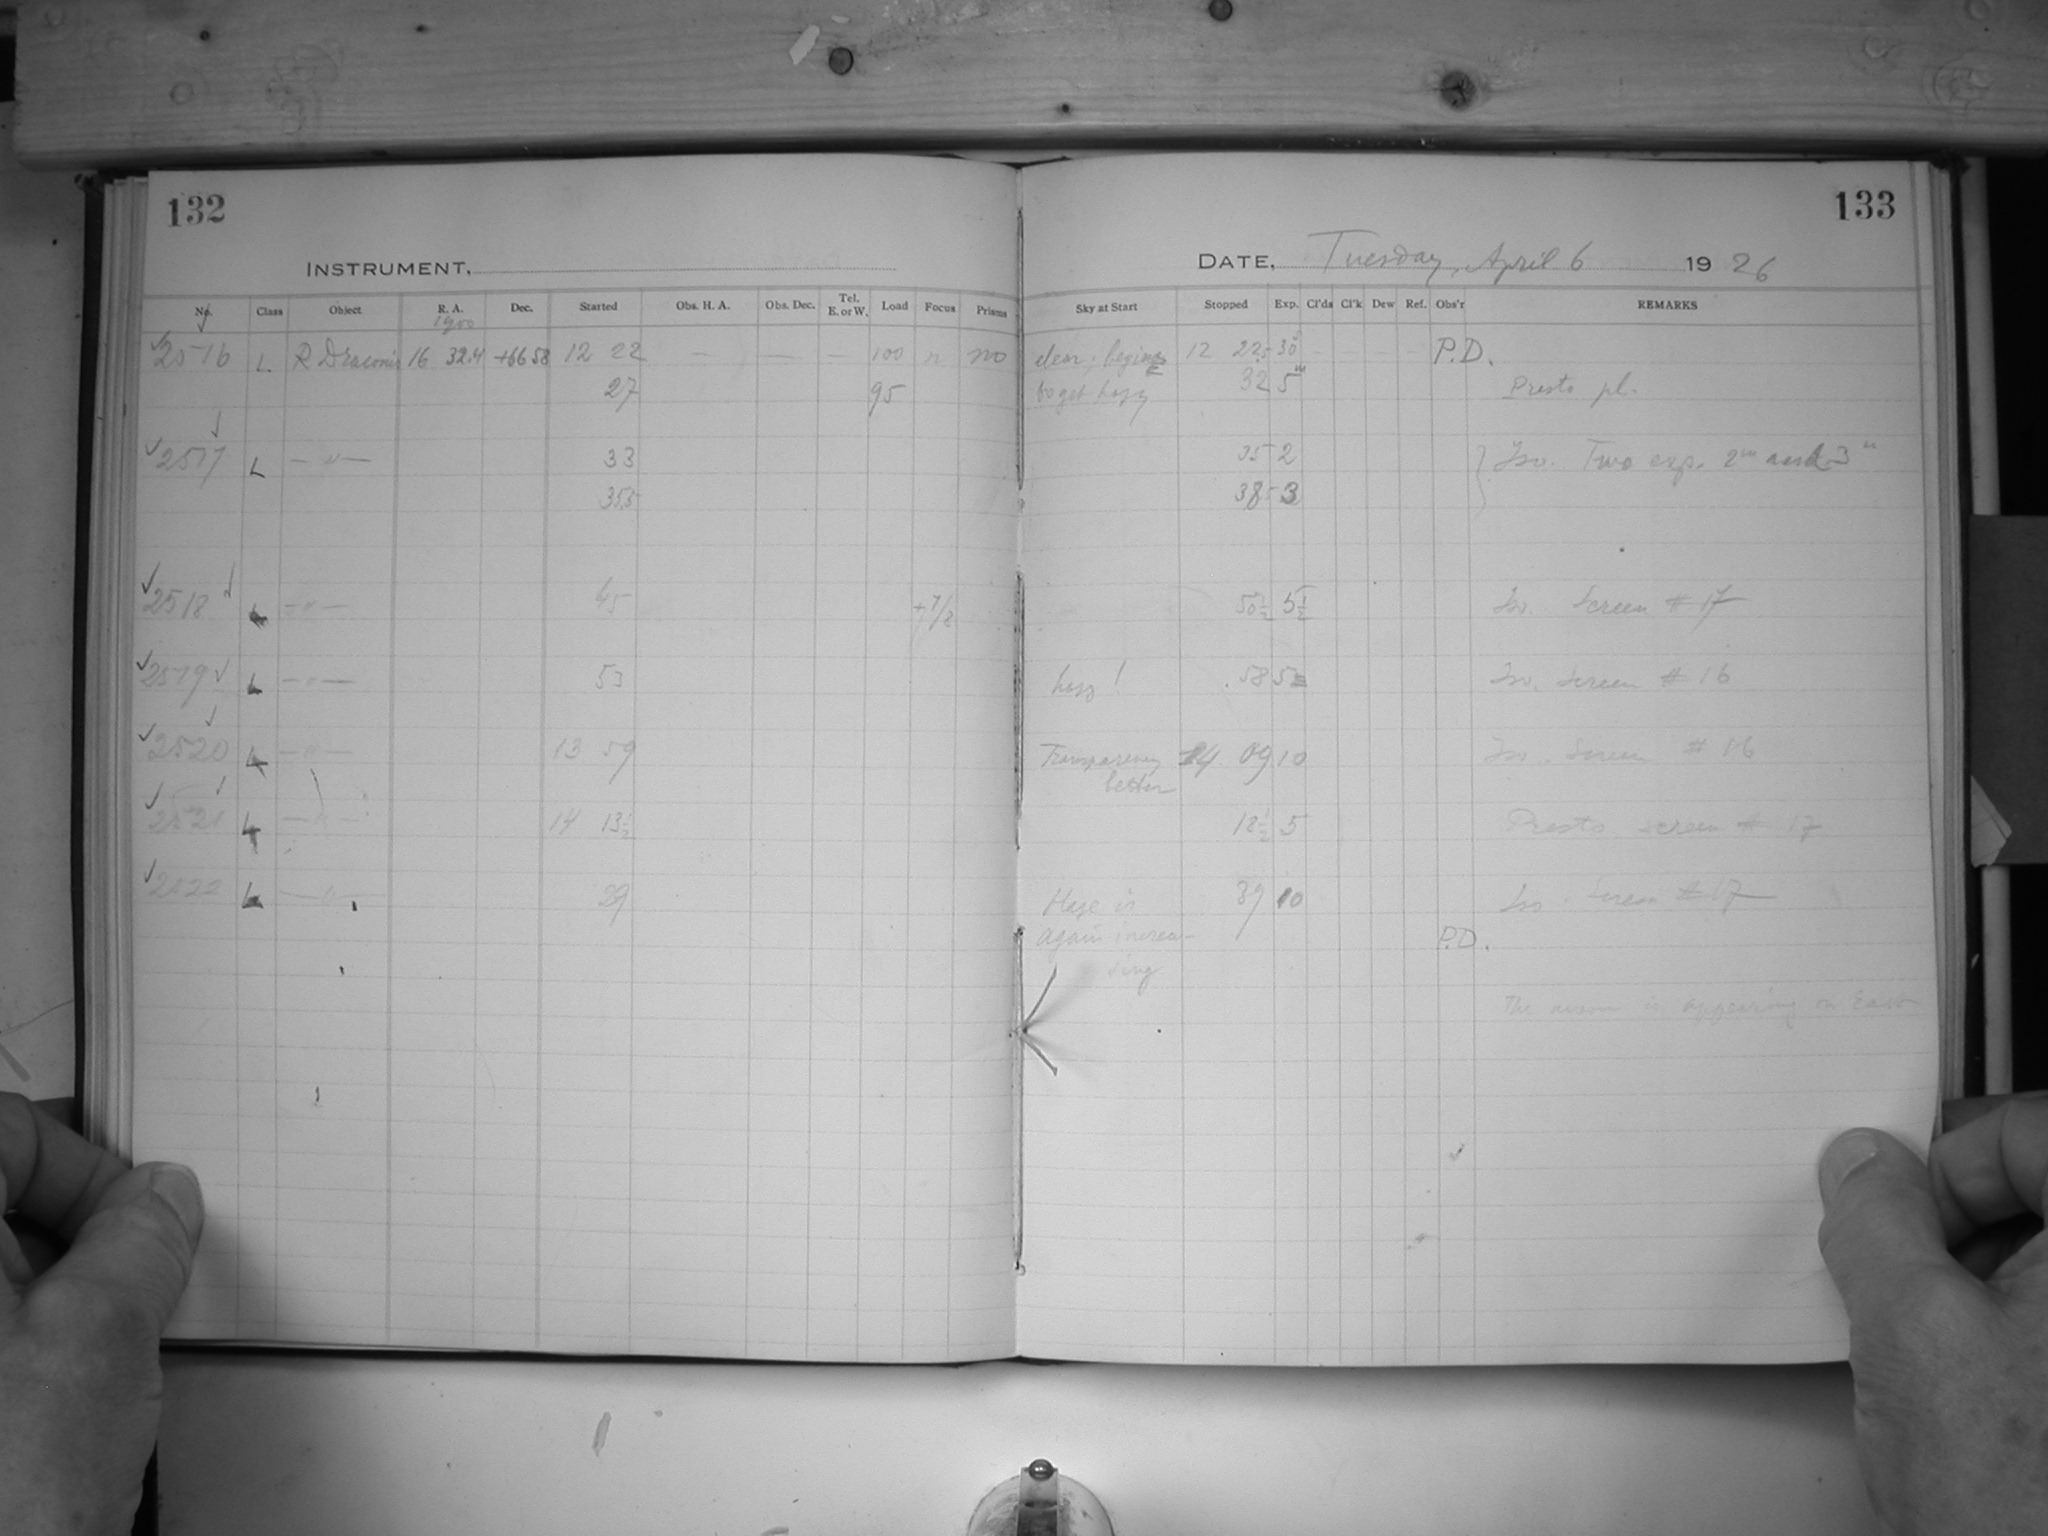 132
INSTRUMENT,
No. Class Object R. A. Dec. Started Obs. H. A. Obs. Dec. Tel. E. or W. Load Focus Prisms
1900
2516 L R Draconis 16 32.4 +66 58 12 22 — — — 100 n no
27 95
2517 L — " — 33
35.5
2518 L — " — 45 +7/8
2519 L — " — 53
2520 L — " — 13 59
2521 L — " — 14 13½
2522 L — " — 29
133
DATE, Tuesday, April 6 1926
Sky at Start Stopped Exp. Cl'ds Cl'k Dew Ref. Obs'r REMARKS
clear; begins 12 22.5 30s P.D.
to get hazy 32 5m Presto pl.
35 2 Iso. Two exp. 2m and 3m
38.5 3
50½ 5½ Iso. Screen # 17
hazy! 58 5 Iso. Screen # 16
Transparency 14 09 10 Iso. Screen # 16
better
18½ 5 Presto screen # 17
Haze is 39 10 Iso. Screen # 17
again increa- P.D.
sing
The moon is appearing on East